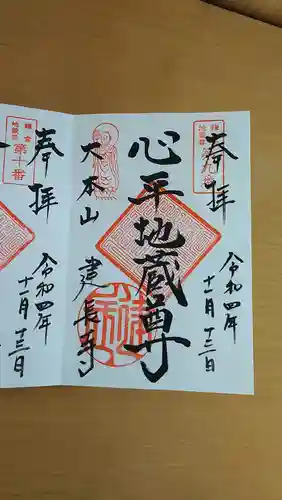 鎌倉
地蔵尊
第九番
奉拝
令和四年
十一月十三日
心平地蔵尊
大本山
建長寺
鎌倉
地蔵尊
第十番
奉拝
令和四年
十一月十三日